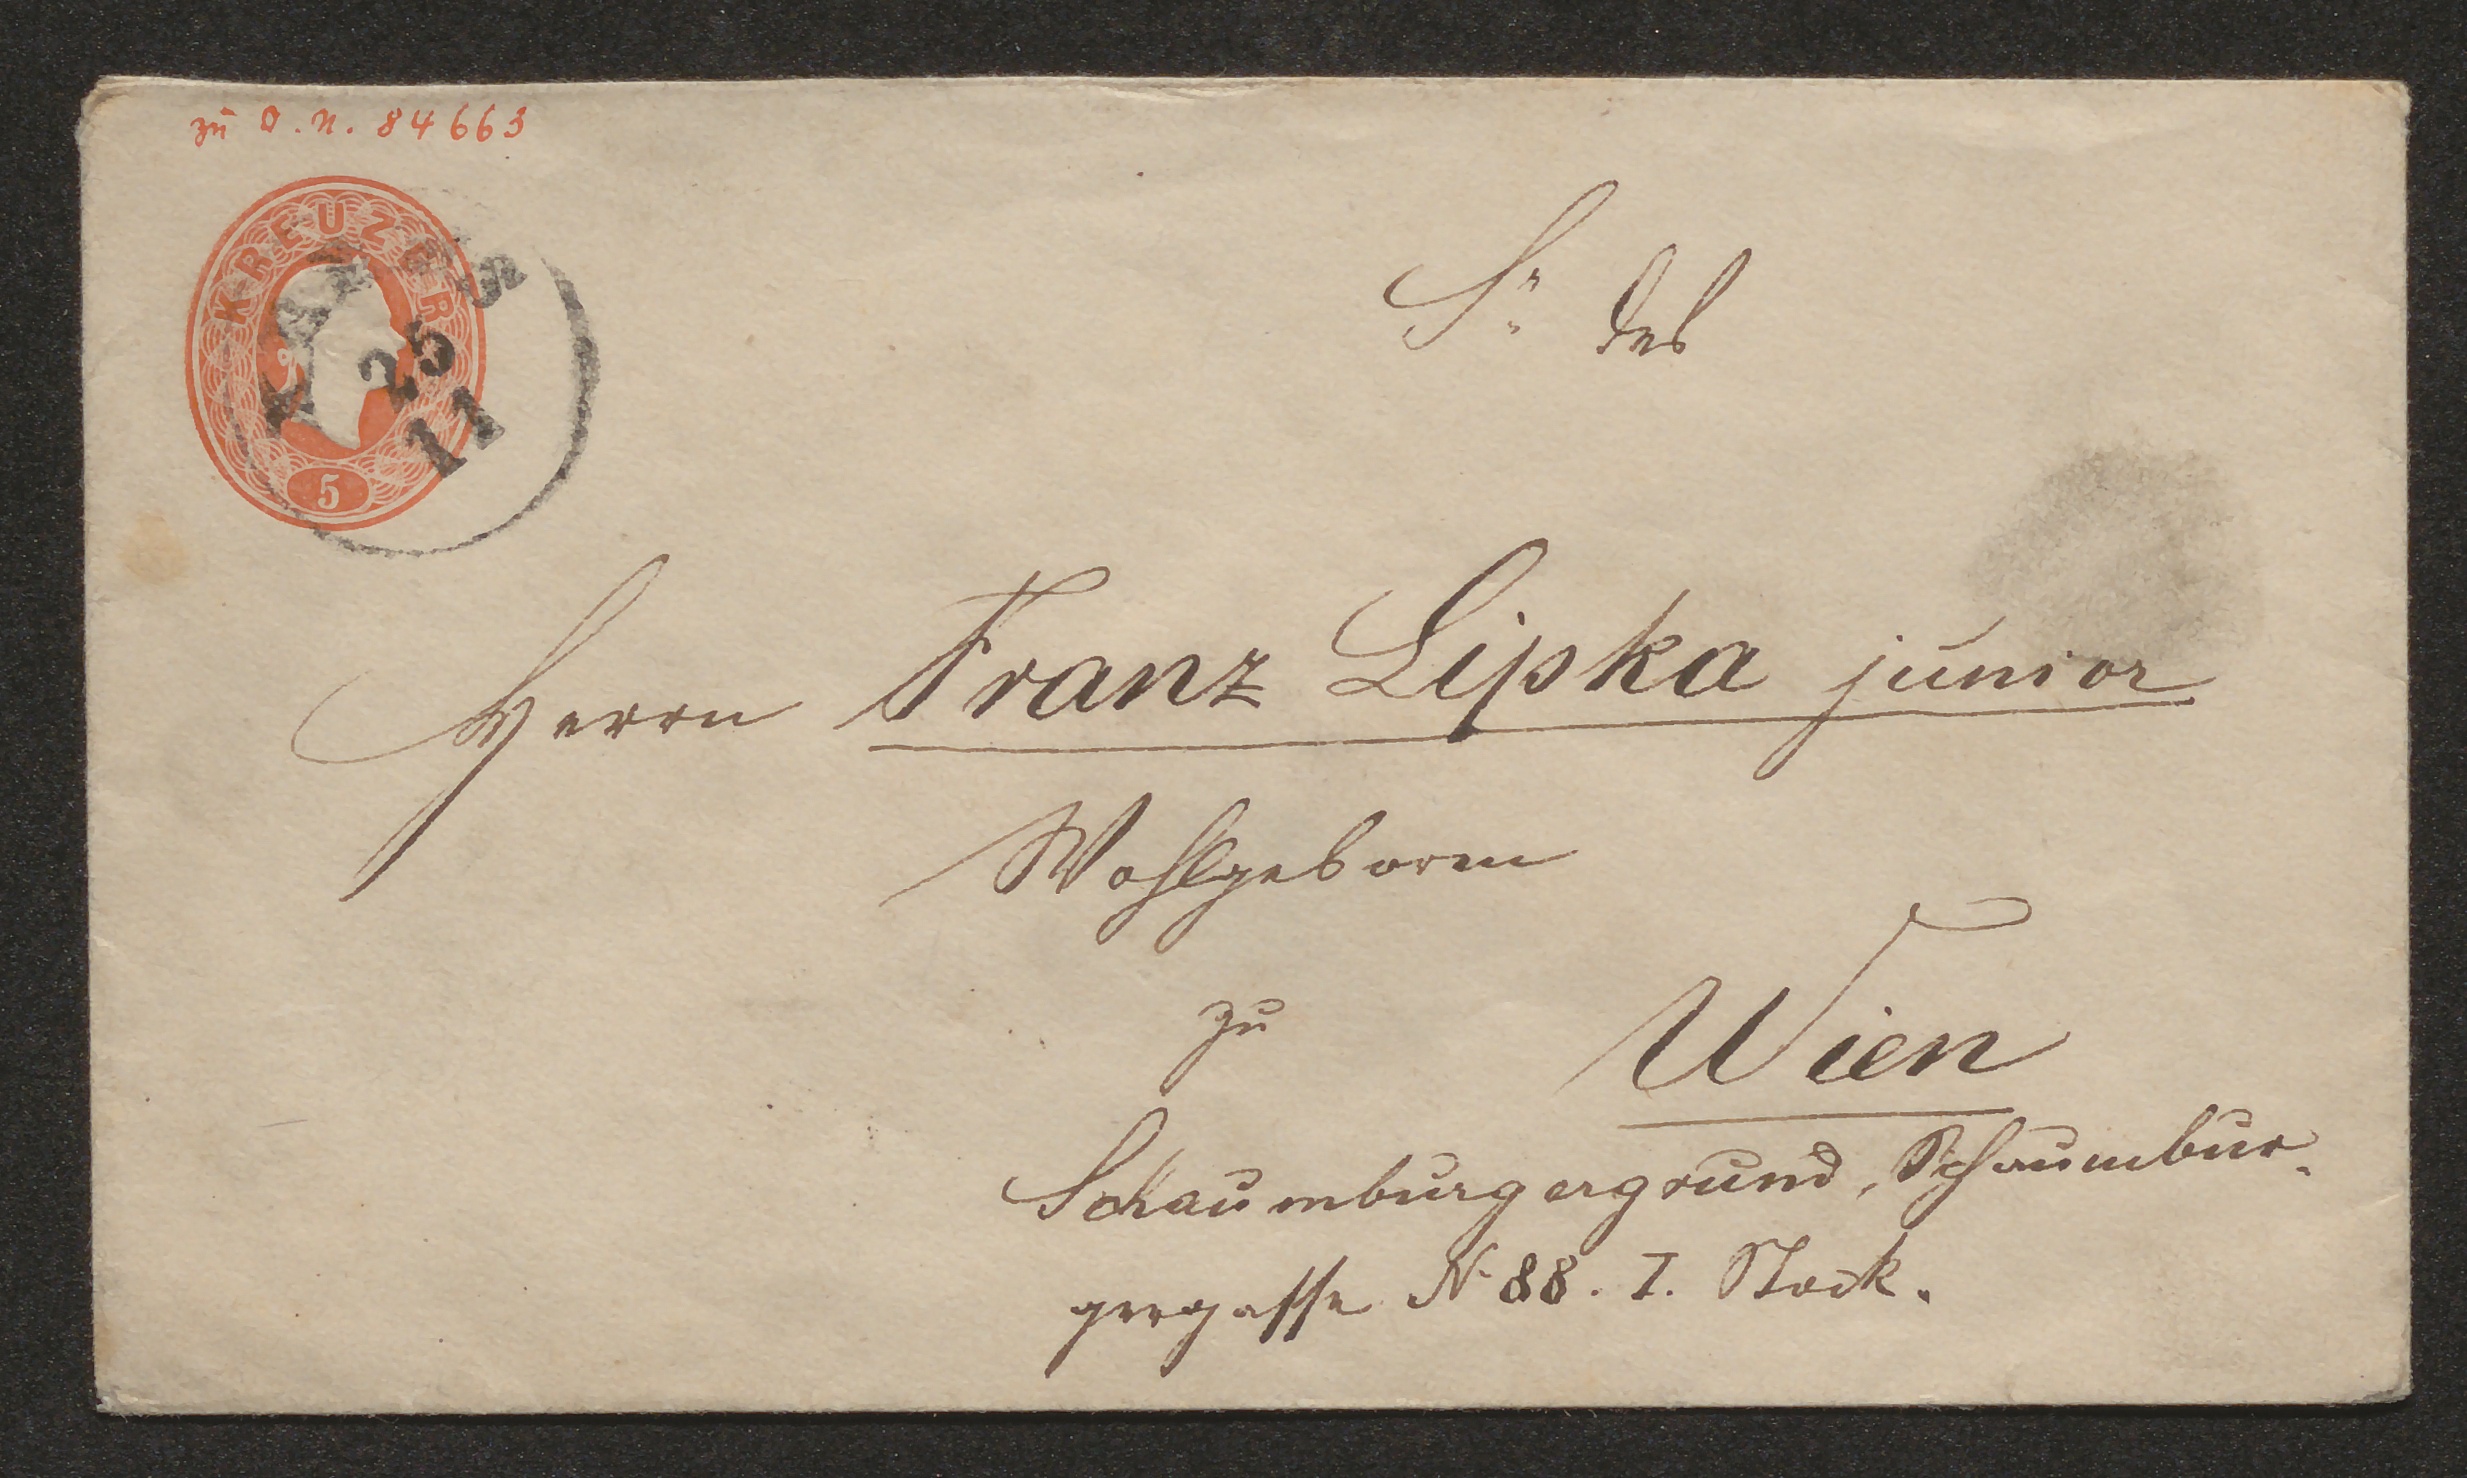 zu O. N. 84663
KREUZER
25
11
5
Sr des
Herrn Franz Lipka junior
Wohlgeborn
zu Wien
Schaumburgergrund, Schaumbur-
gergasse No 88. I. Stock.